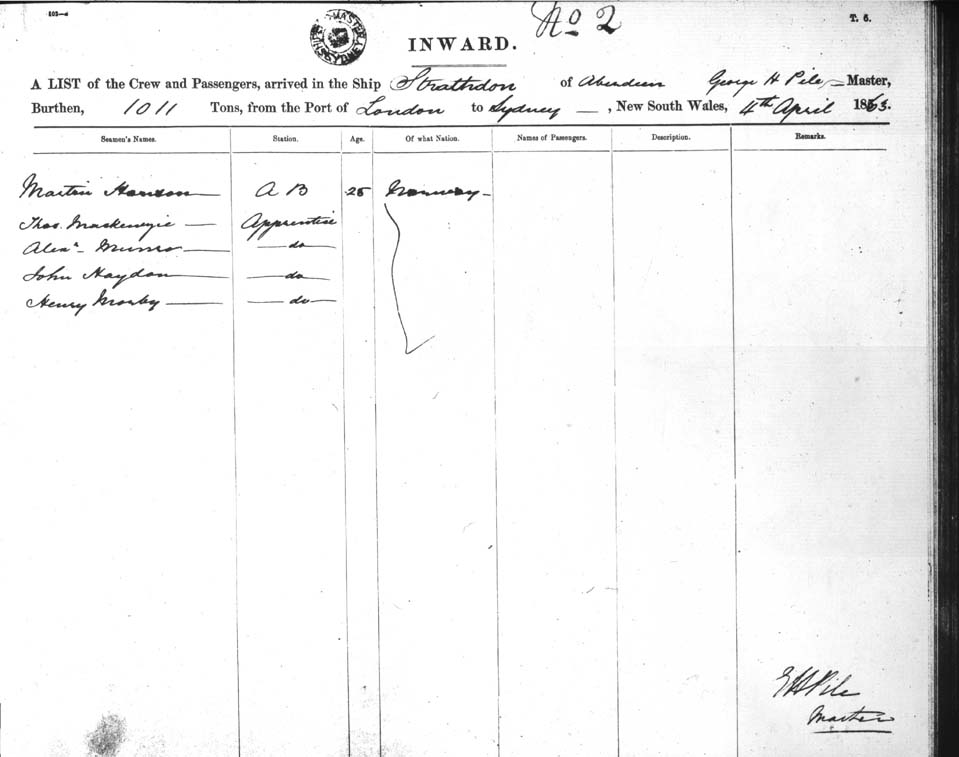 103—4
No 2
T. 6.
INWARD.
A LIST of the Crew and Passengers, arrived in the Ship Strathdon of Aberdeen George H Pile, Master,
Burthen, 1011 Tons, from the Port of London to Sydney —, New South Wales, 4th April 1863.
Seamen's Names. Station. Age. Of what Nation. Names of Passengers. Description. Remarks.
Martin Hanson A B 25 Norway
Thos. Mackenzie Apprentice
Alexr Munro do
John Haydon do
Henry Moxby do
G H Pile
Master